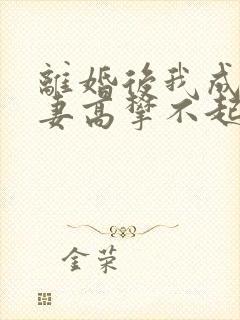 離婚後我成
妻高攀不起
金荣